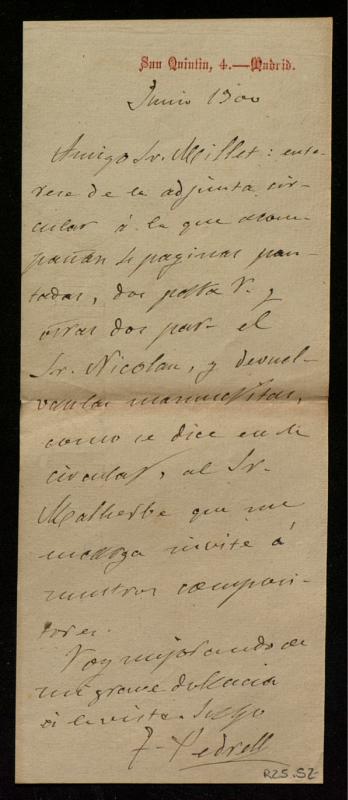 San Quintin, 4.—Madrid.
Junio 1900
Amigo Sr. Millet: ente-
rese de la adjunta cir-
cular á la que acom-
pañan 4 paginas pau-
tadas, dos para V. y
otras dos para el
Sr. Nicolau, y devuel-
vanlas manuscritas,
como se dice en la
circular, al Sr.
Malherbe que me
encarga invite á
nuestros composi-
tores.
Voy mejorando de
mi grave dolencia
á la vista. Suyo
F. Pedrell
R25.52